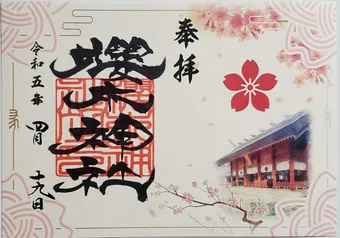 奉拝
櫻木神社
令和五年 四月 十九日